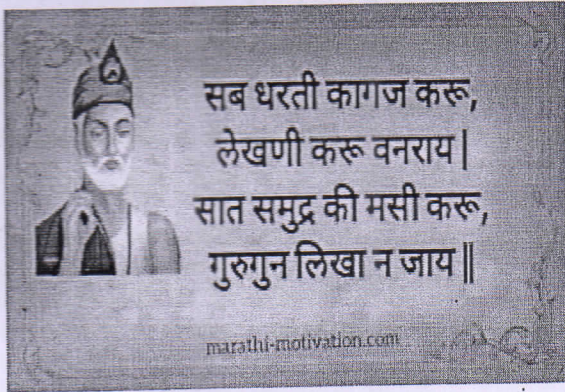 सब धरती कागज करू,
लेखणी करू वनराय |
सात समुद्र की मसी करू,
गुरुगुन लिखा न जाय ||
marathi-motivation.com